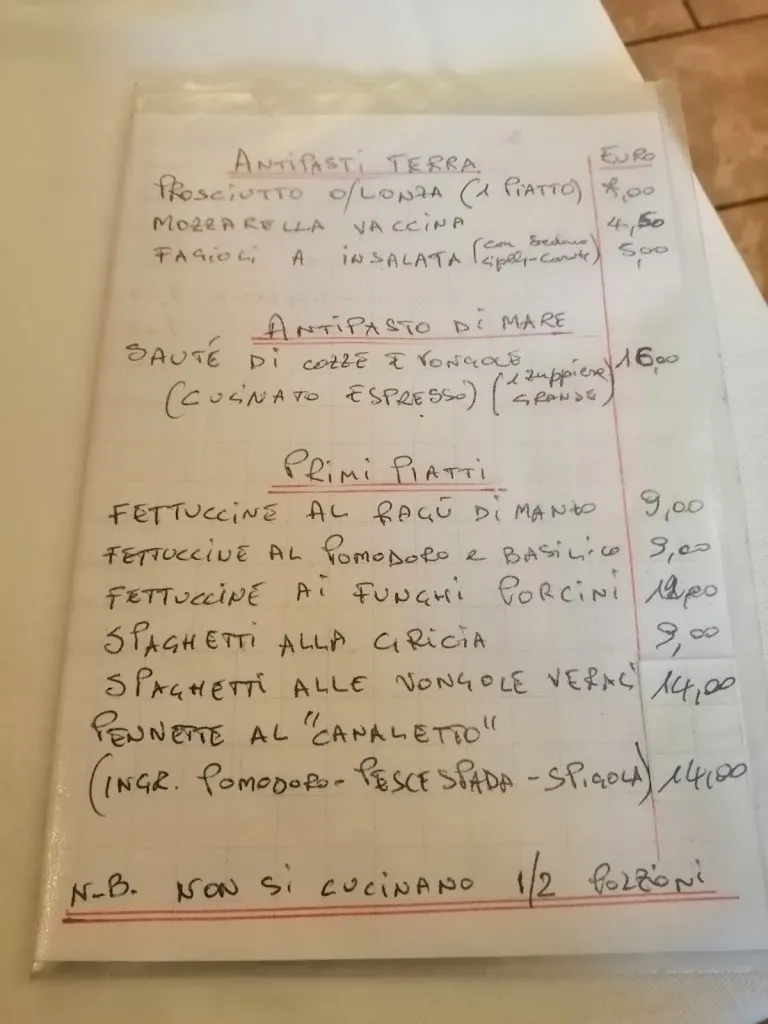 ANTIPASTI TERRA EURO
PROSCIUTTO O/LONZA (1 PIATTO) 8,00
MOZZARELLA VACCINA 4,50
FAGIOLI A INSALATA (con Sedano 5,00
cipolla-carote)
ANTIPASTO DI MARE
SAUTÉ DI COZZE E VONGOLE 16,00
(CUCINATO ESPRESSO) (1 zuppiera
GRANDE)
PRIMI PIATTI
FETTUCCINE AL RAGÙ DI MANZO 9,00
FETTUCCINE AL POMODORO e BASILICO 9,00
FETTUCCINE AI FUNGHI PORCINI
SPAGHETTI ALLA GRICIA 9,00
SPAGHETTI ALLE VONGOLE VERACI 14,00
PENNETTE AL "CANALETTO"
(INGR. POMODORO-PESCE SPADA-SPIGOLA) 14,00
N-B. NON SI CUCINANO 1/2 POZZIONI